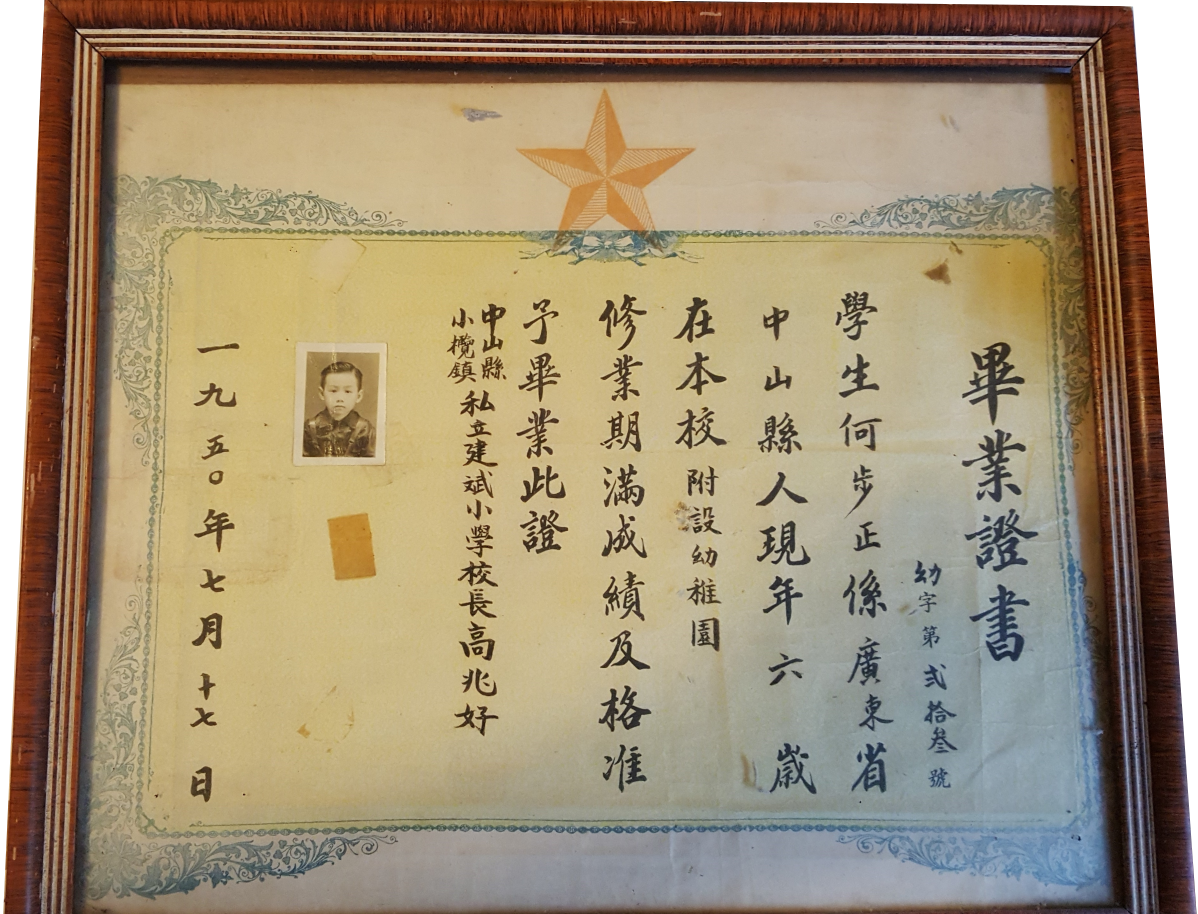 畢業證書
幼字第貳拾叁號
學生何步正係廣東省
中山縣人現年六歲
在本校附設幼稚園
修業期滿成績及格准
予畢業此證
中山縣
小欖鎮
私立建斌小學校長高兆好
一九五〇年七月十七日